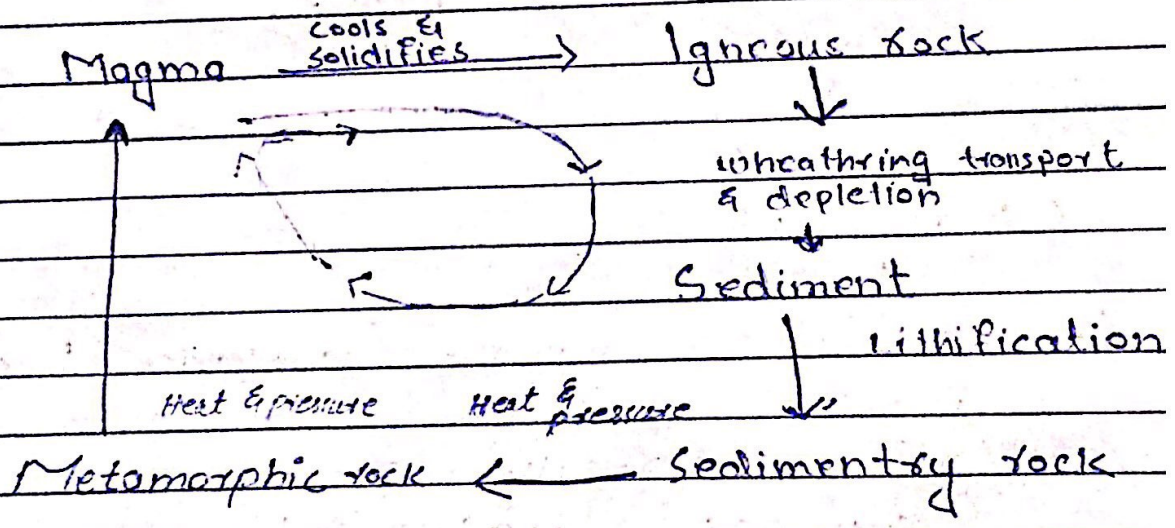 cools &
Magma solidifies Igneous rock
wheathring transport
& depletion
Sediment
Lithification
Heat & pressure Heat & pressure
Metamorphic rock Sedimentry rock